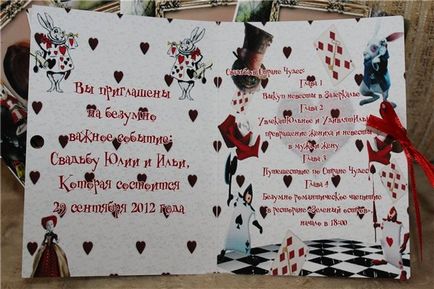 Вы приглашены
на безумно
важное событие:
Свадьбу Юлии и Ильи,
Которая состоится
29 сентября 2012 года
Свадьба в Стране Чудес:
Глава 1
Выкуп невесты в Зазеркалье
Глава 2
УвлекаЮльное и УдивляИльное
превращение жениха и невесты
в мужа и жену
Глава 3
Путешествие по Стране Чудес
Глава 4
Безумно романтическое чаепитие
в ресторане «Зеленый остров»
начало в 18:00